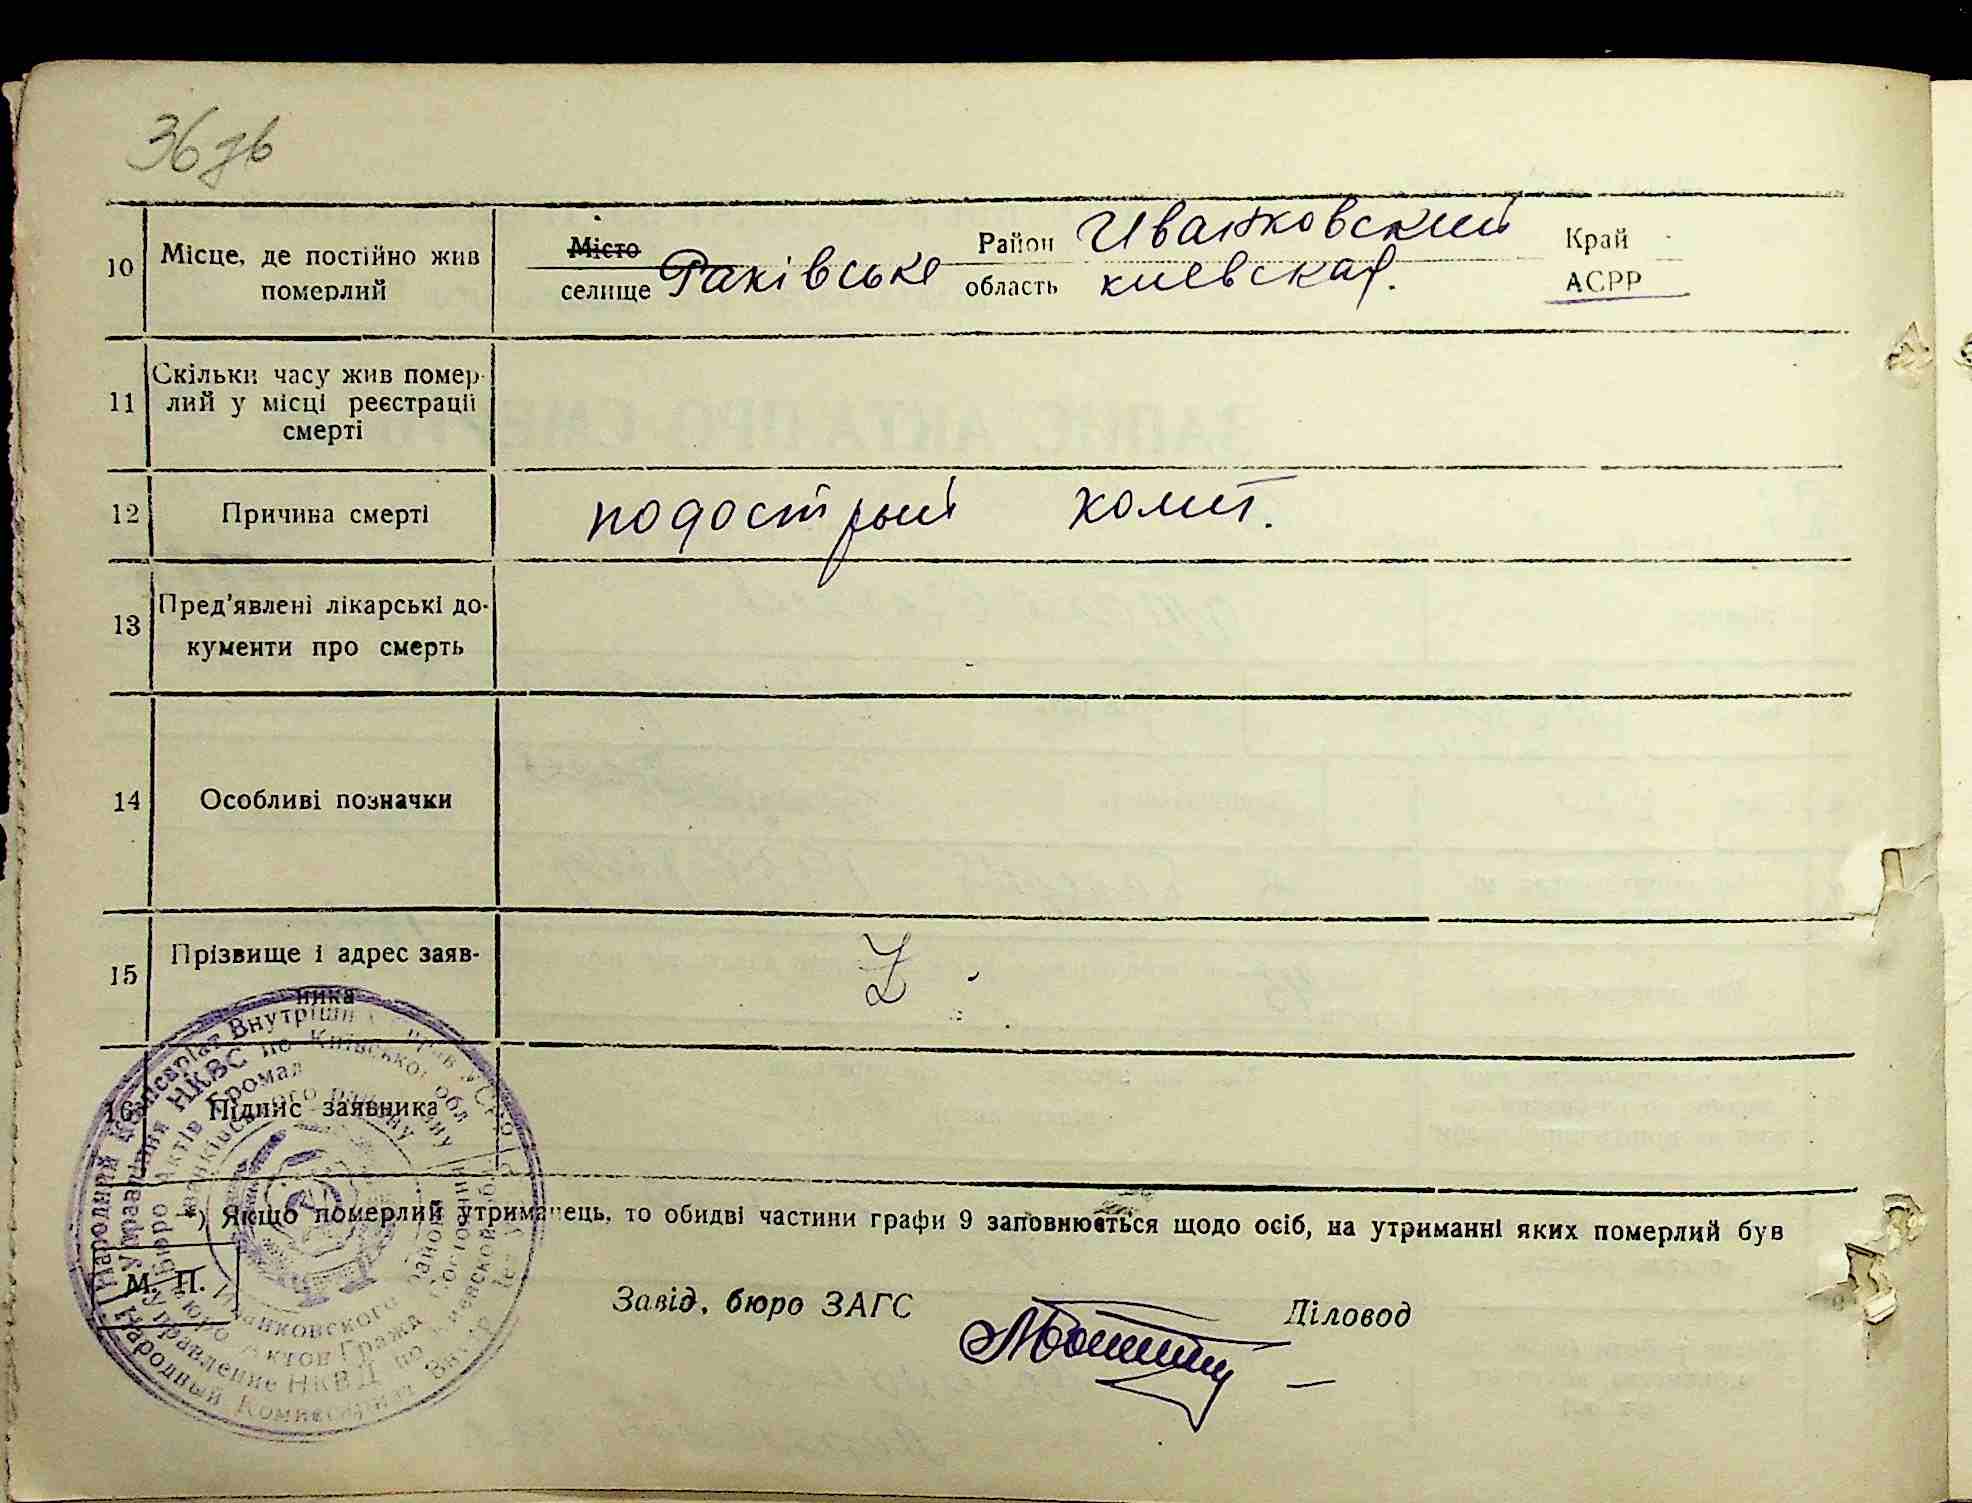 36 зв
10 Місце, де постійно жив померлий
Місто
селище Раківське
Район Иванковский
область киевская.
Край
АСРР
11 Скільки часу жив помер-
лий у місці реєстрації
смерті
12 Причина смерті подострый колит.
13 Пред'явлені лікарські до-
кументи про смерть
14 Особливі позначки
15 Прізвище і адрес заяв-
ника
Z
16 Підпис заявника
*) Якщо померлий утриманець, то обидві частини графи 9 заповнюється щодо осіб, на утриманні яких померлий був
М. П.
Завід. бюро ЗАГС
Діловод
Народний Комісаріат Внутрішн Справ УСРР
Управління НКВС по Київської обл
Бюро Актів Громад
Іванківського району
Иванковского района
Бюро Актов Гражд Состояния
Управление НКВД по Киевской обл
Народный Комиссариат Внутр